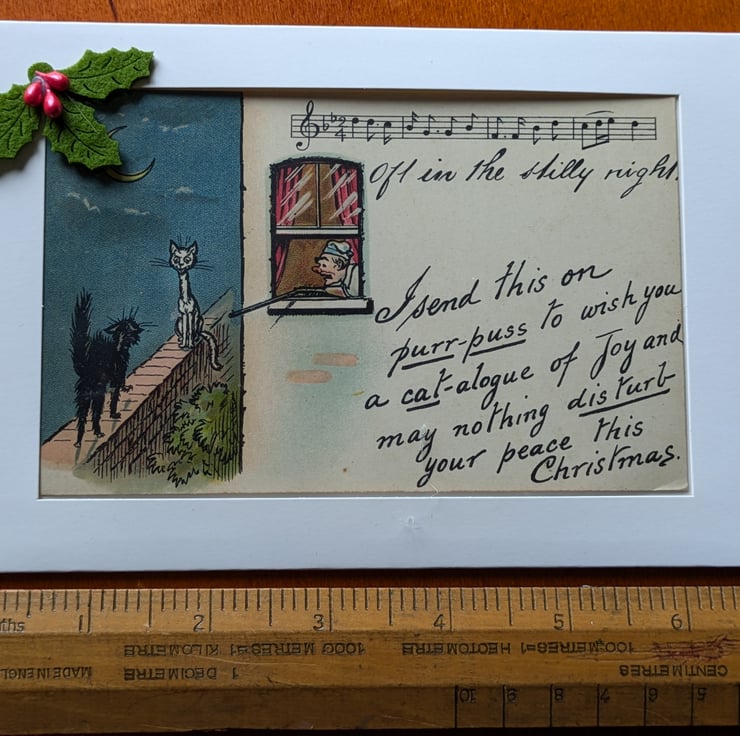 2/4
Oft in the stilly night.
I send this on
purr-puss to wish you
a cat-alogue of Joy and
may nothing disturb
your peace this
Christmas.
ths 1 2 3 4 5 6
1000 METRES=1 KILOMETRE 100 METRES=1 HECTOMETRE
MADE IN ENGL 1 DECIMETRE CENTIMETRES
10 9 8 7 6 5